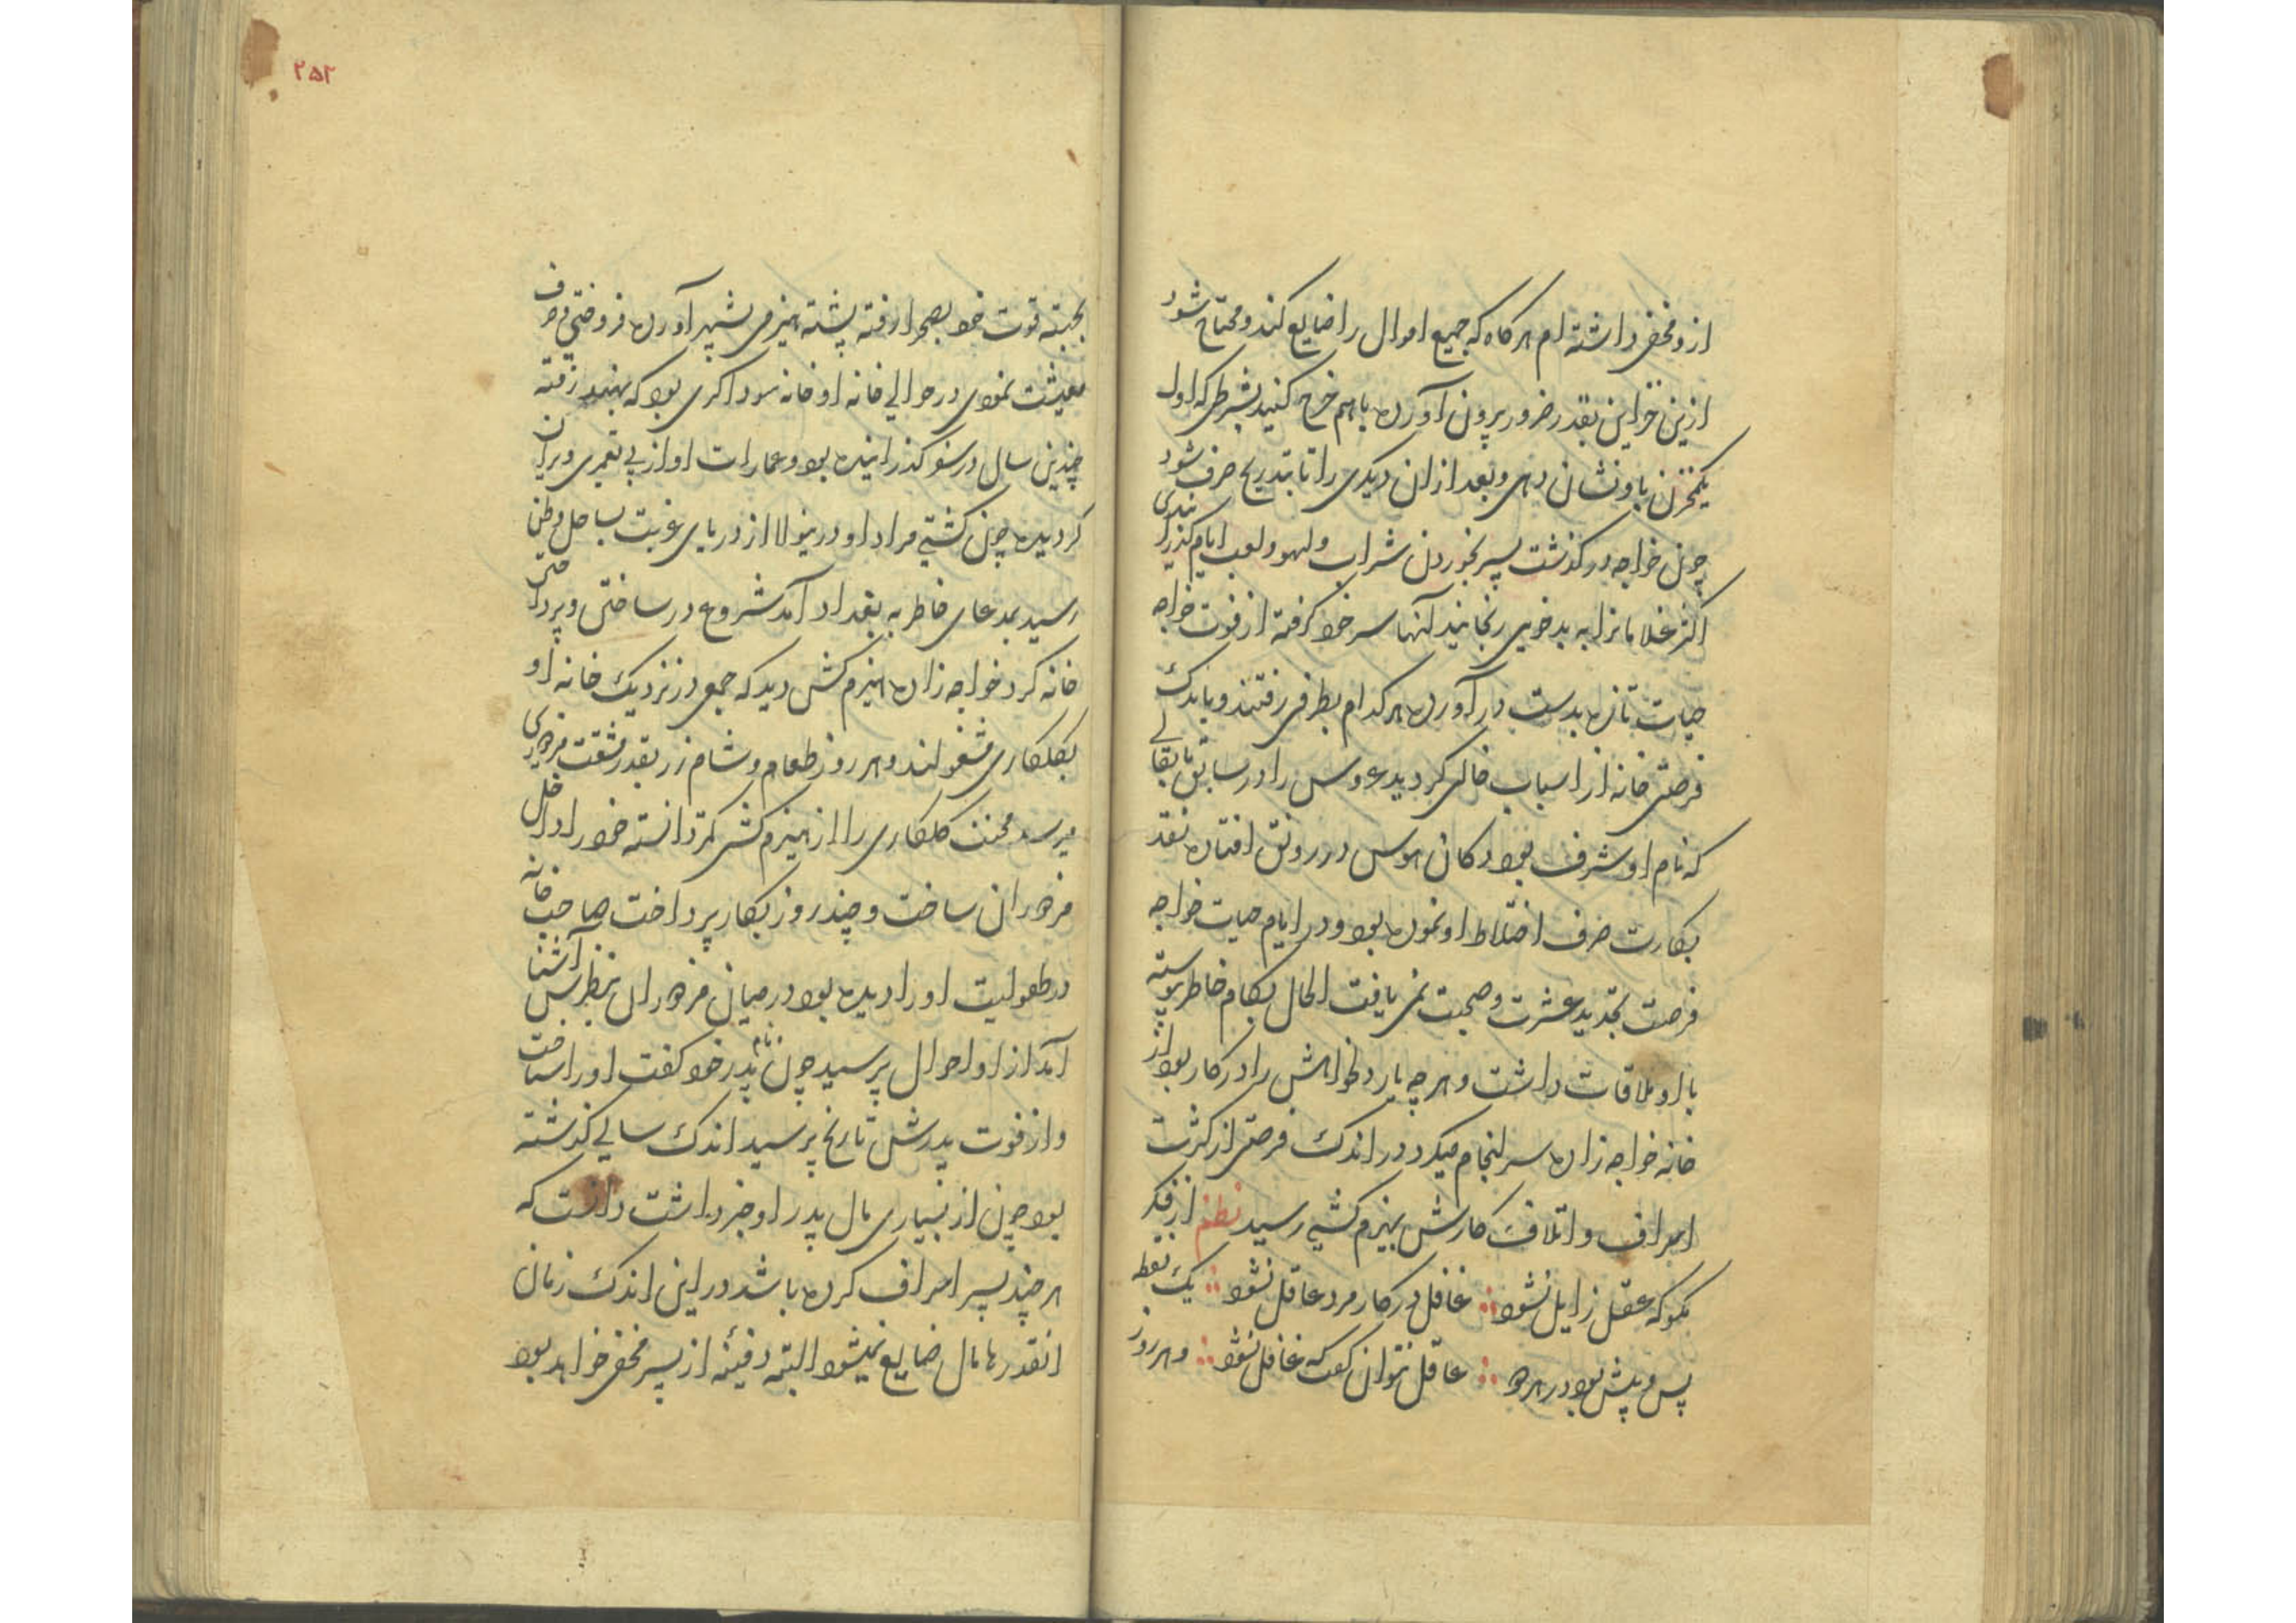 ازو مخفی داشته ام هر کاه که جمیع اموال را ضایع کند و محتاج شود
ازین خزاین بقدر ضرور بیرون آورده باهم خرج کنید بشرطی که اول
یکمخزن باو نشان دهی و بعد ازان دیکری را تا بتدریج صرف شود
چون خواجه در کذشت پسر بخوردن شراب و لهو و لعب ایام کذرانیدی
اکثر غلامانرا به بدخویی رنجانید آنها سر خود کرفته از فوت خواجه
حیات تازه بدست در آورده هر کدام بطرفی رفتند و باندک
فرصتی خانه از اسباب خالی کردید عروس را در سابق با بقالی
که نام او شرف بود دکان هوس در رونق افتاده نقد
بکارت صرف اختلاط او نموده بود و در ایام حیات خواجه
فرصت تجدید عشرت و صحبت نمی یافت الحال بکام خاطر پیوسته
با او ملاقات داشت و هر چه یار دلخواهش را در کار بود از
خانه خواجه زاده سرانجام میکرد در اندک فرصتی از کثرت
اسراف و اتلاف کارش بهیزم کشی رسید نظم از فکر
نکو که عقل زایل نشود غافل در کار مرد عاقل نشود یک نقطه
پس و پیش بود در هر دو عاقل نتوان کفت که غافل نشود و هر روز
۲۵۲
بجهته قوت خود بصحرا رفته پشته هیزمی بشهر آورده فروختی و صرف
معیشت نمودی در حوالی خانه او خانه سوداکری بود که بهند رفته
چندین سال در سفر کذرانیده بود و عمارات او از بی تعمیری ویران
کردیده چون کشتی مراد او درینولا از دریای غربت بساحل وطن
رسید بمدعای خاطر به بغداد آمد شروع در ساختن و پرداختن
خانه کرد خواجه زاده هیزم کش دید که جمعی در نزدیک خانه او
بکلکاری مشغولند و هر روز طعام و شام زر بقدر مشقت مزدوری
میرسد محنت کلکاری را از هیزم کشی کمتر دانسته خود را داخل
مزدوران ساخت و چند روز بکار پرداخت صاحب خانه
در طفولیت او را دیده بود در میان مزدوران بنظرش آشنا
آمد از او احوال پرسید چون نام پدر خود کفت او را شناخت
و از فوت پدرش تاریخ پرسید اندک سالی کذشته
بود چون از بسیاری مال پدر او خبر داشت دانست که
هر چند پسر اسراف کرده باشد در این اندک زمان
انقدرها مال ضایع نمیشود البته دفینه از پسر مخفی خواهد بود